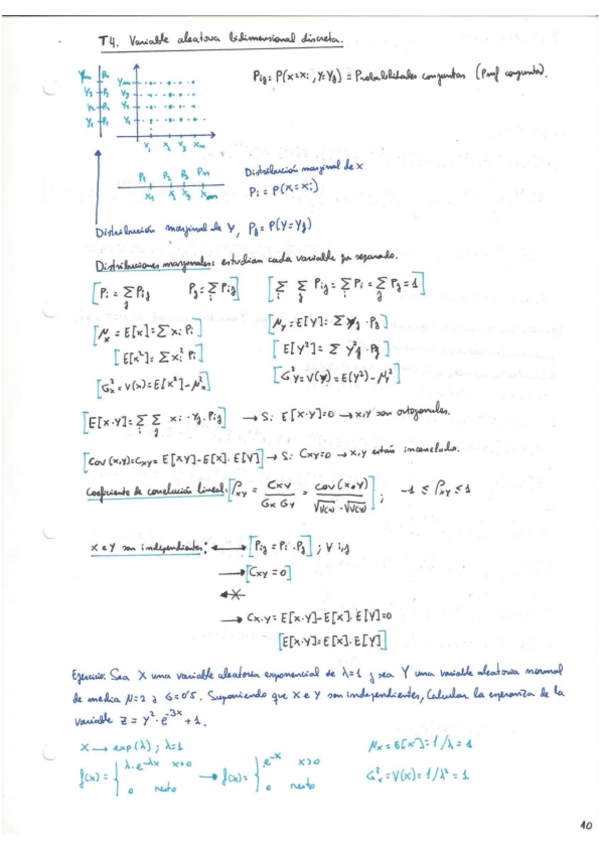 T4. Variable aleatoria bidimensional discreta.
Pij = P(X=xi, Y=yj) ≡ Probabilidades conjuntas (Prof conjunta).
Ym Pm
Y3 P3
Y2 P2
Y1 P1
Ym
Y3
Y2
Y1
x1 x2 x3 xm
P1 P2 P3 Pm
x1 x2 x3 xm
Distribución marginal de X
Pi = P(X=xi)
Distribución marginal de Y, Pj = P(Y=Yj)
Distribuciones marginales: estudian cada variable por separado.
[Pi = Σj Pij Pj = Σi Pij] [Σi Σj Pij = Σi Pi = Σj Pj = 1]
[μx = E[x] = Σ xi · Pi] [μy = E[Y] = Σ yj · Pj]
[E[x²] = Σ xi² Pi] [E[Y²] = Σ y²j · Pj]
[σ²x = V(x) = E[x²] - μ²x] [σ²y = V(y) = E(Y²) - μy²]
[E[X·Y] = Σi Σj xi · yj · Pij] → Si E[X·Y]=0 → x,y son ortogonales.
[Cov(x,y) = Cxy = E[XY] - E[X]·E[Y]] → Si Cxy=0 → x,y están incorrelados.
Coeficiente de correlación lineal: [ρxy = Cxy / σx σy = cov(x,y) / √V(x) · √V(y)] ; -1 ≤ ρxy ≤ 1
X e Y son independientes: ⟷ [Pij = Pi · Pj] ; ∀ i,j
→ [Cxy = 0]
↚
→ Cx·y = E[x·y] - E[x]·E[Y] = 0
[E[X·Y] = E[X]·E[Y]]
Ejercicio: Sea X una variable aleatoria exponencial de λ=1 y sea Y una variable aleatoria normal
de media μ=2 y σ=0'5. Suponiendo que X e Y son independientes, Calcular la esperanza de la
variable Z = Y² · e^-3x + 1.
X → exp(λ) ; λ=1 μx = E[x] = 1/λ = 1
f(x) = { λ·e^-λx x>0 → f(x) = { e^-x x>0 σ²x = V(x) = 1/λ² = 1
0 resto 0 resto
10